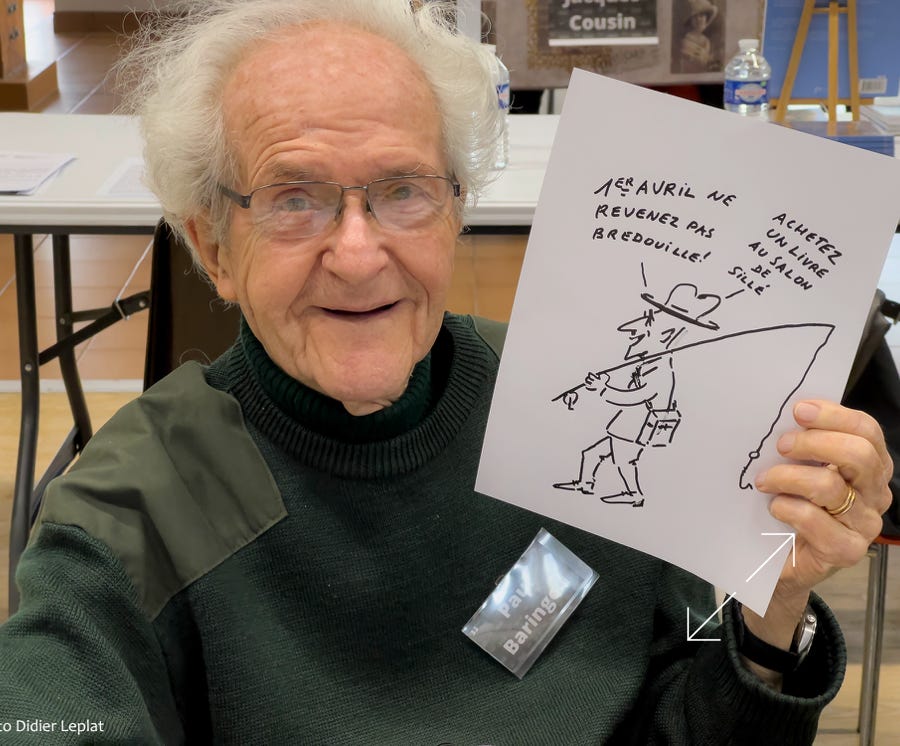 Jacques
Cousin
1ER AVRIL NE
REVENEZ PAS
BREDOUILLE!
ACHETEZ
UN LIVRE
AU SALON
DE
SILLÉ
Baringo
Didier Leplat